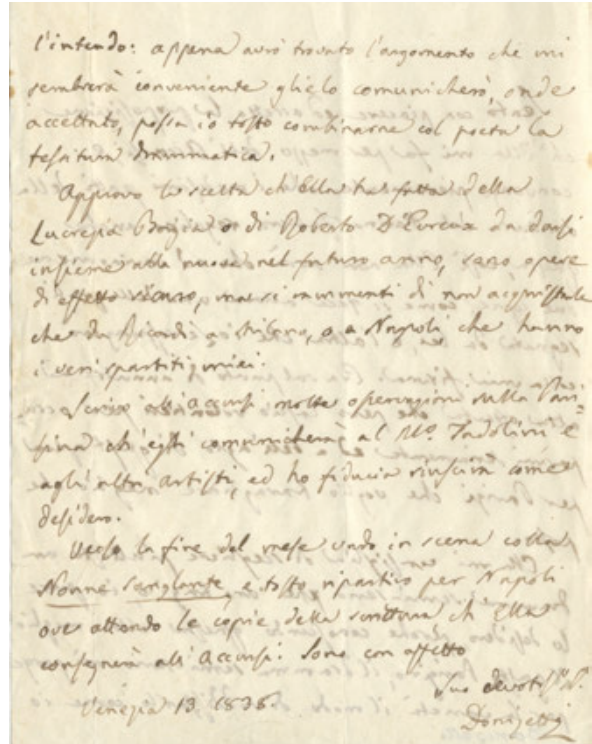 l'intendo: appena avrò trovato l'argomento che mi
sembrerà conveniente glielo comunicherò, onde
accettato, possa io tosto combinarne col poeta la
tessitura drammatica.
Approvo la scelta ch'Ella ha fatta della
Lucrezia Borgia o di Roberto D'Evreux da darsi
insieme alla nuova nel futuro anno, sono opere
di effetto sicuro, ma si rammenti di non acquistarle
che da Ricordi a Milano, o a Napoli che hanno
i veri spartiti
Scrissi all'Accursi molte osservazioni sulla
ch'egli comunicherà al Mo. Tadolini e
agli altri artisti, ed ho fiducia riuscirà come
desidero.
Verso la fine del mese vado in scena colla
Nonne Sanglante, e tosto ripartirò per Napoli
ove attendo le copie della scrittura ch'Ella
consegnerà all'Accursi: Sono con affetto
Suo
Venezia 13 1838.
Donizetti